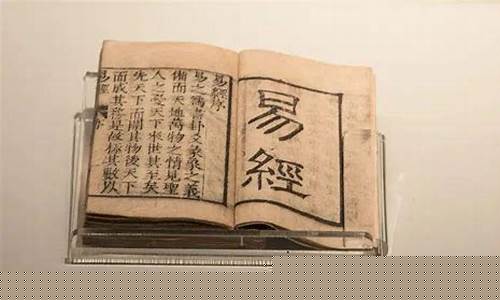 易經
易經序
易之爲書卦爻彖象之義
備而天地萬物之情見聖
人之憂天下來世其至矣
先天下而開其物後天下
而成其務是故極其數以
易經